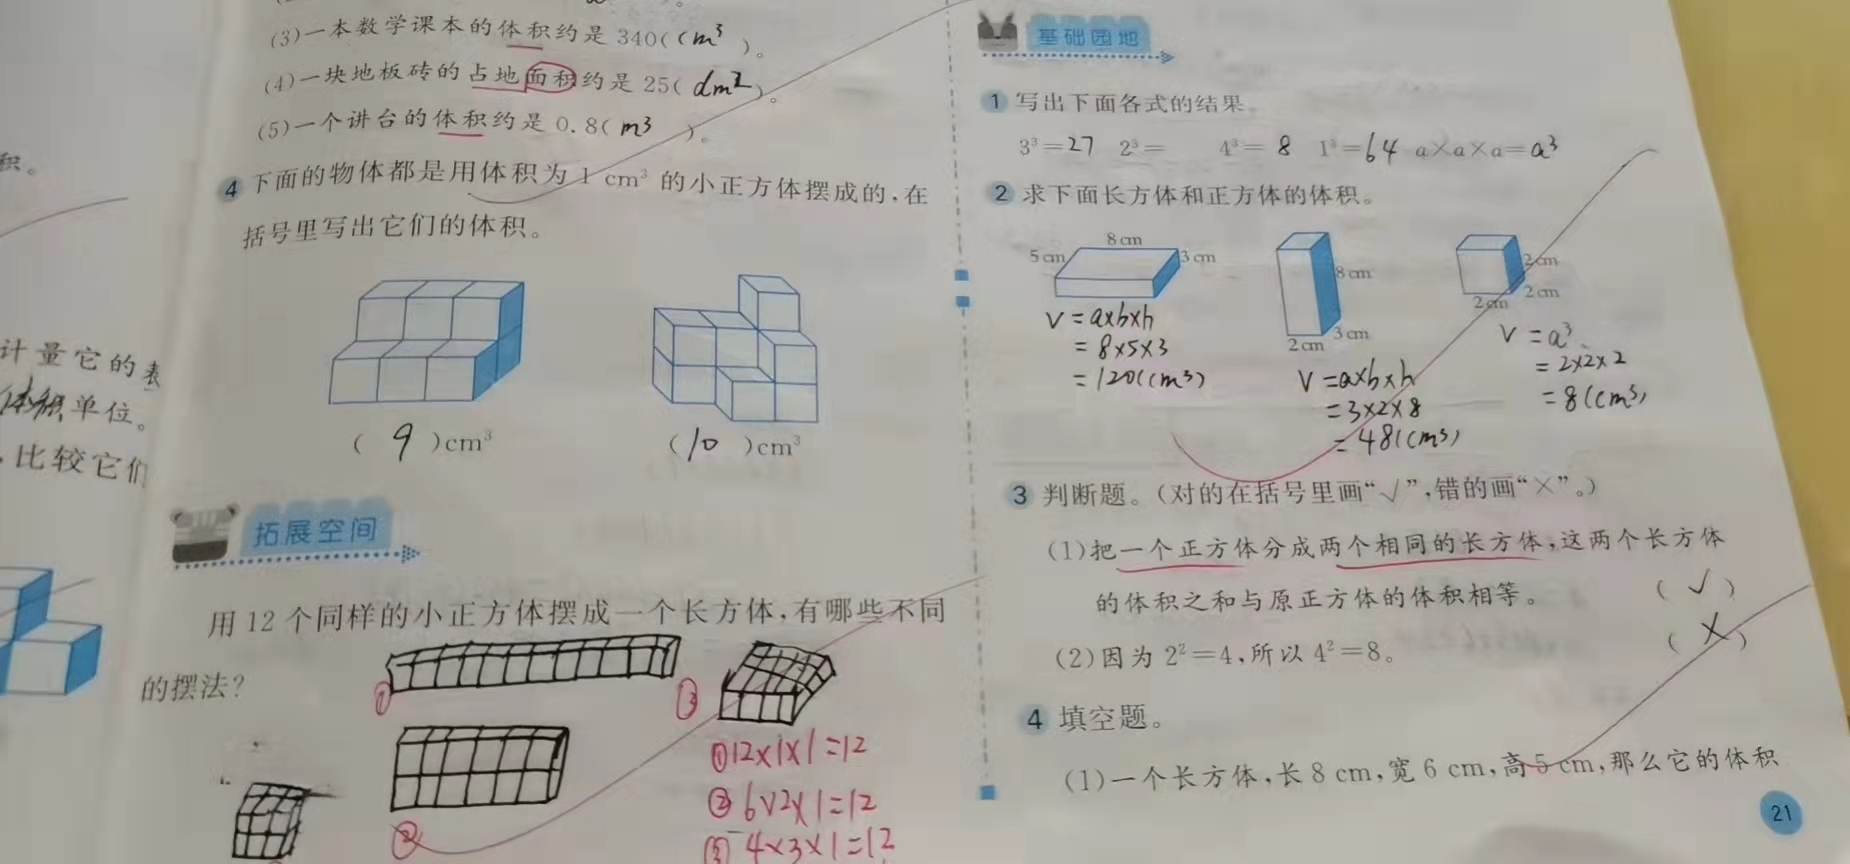 (3)一本数学课本的体积约是340(cm³)。
(4)一块地板砖的占地面积约是25(dm²)。
(5)一个讲台的体积约是0.8(m³)。
4 下面的物体都是用体积为1 cm³的小正方体摆成的,在
括号里写出它们的体积。
(9)cm³ (10)cm³
拓展空间
用12个同样的小正方体摆成一个长方体,有哪些不同
的摆法?
① ③
②
①12×1×1=12
②6×2×1=12
③4×3×1=12
积。
计量它的表
体积单位。
,比较它们
基础园地
1 写出下面各式的结果
3³=27 2³= 4³=8 1³=64 a×a×a=a³
2 求下面长方体和正方体的体积。
8cm
5cm 3cm
V=a×b×h
=8×5×3
=120(cm³)
8cm
3cm
2cm
V=a×b×h
=3×2×8
=48(cm³)
2cm
2cm 2cm
V=a³
=2×2×2
=8(cm³)
3 判断题。(对的在括号里画“√”,错的画“×”。)
(1)把一个正方体分成两个相同的长方体,这两个长方体
的体积之和与原正方体的体积相等。 (√)
(2)因为2²=4,所以4²=8。 (×)
4 填空题。
(1)一个长方体,长8 cm,宽6 cm,高5 cm,那么它的体积
21